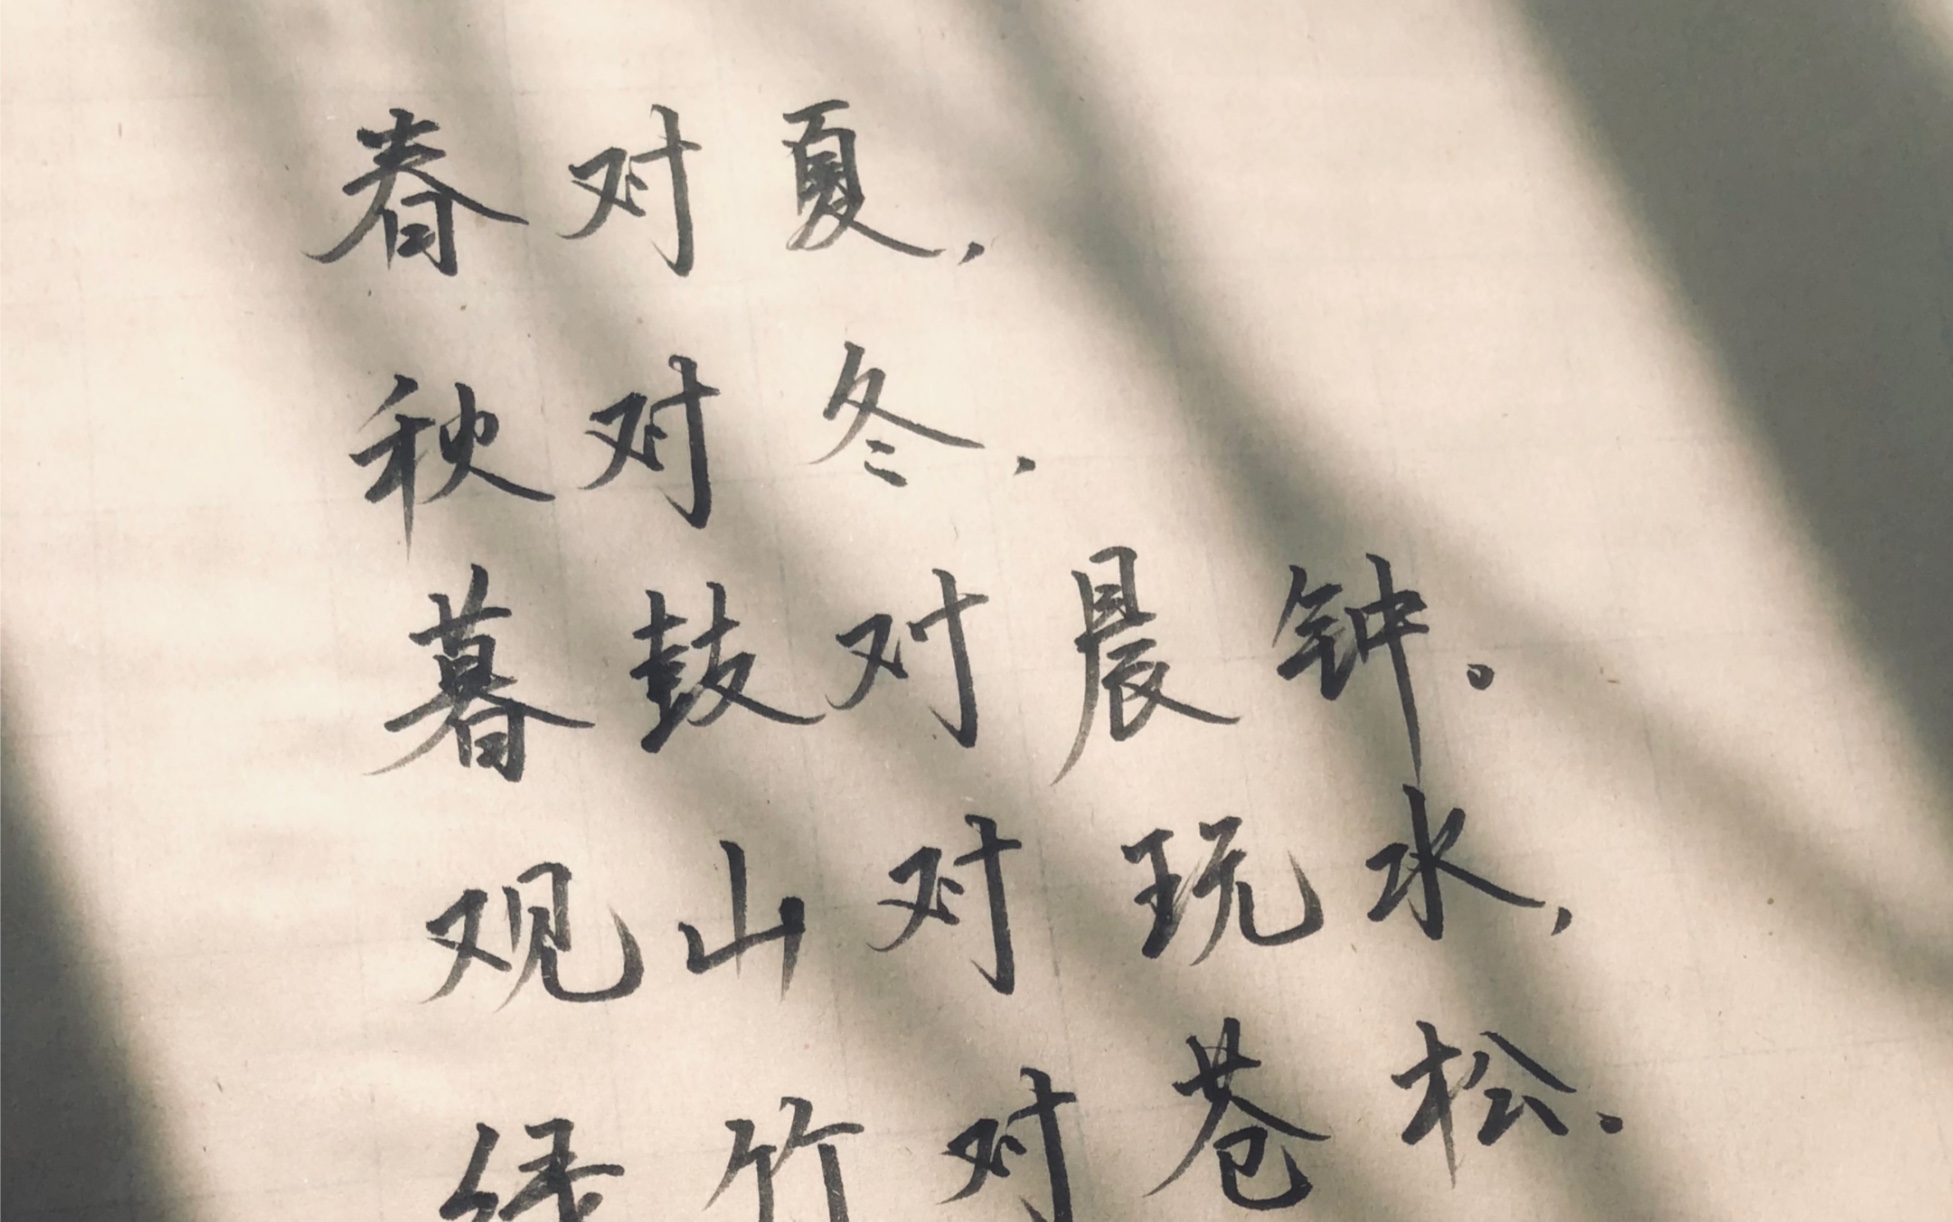 春对夏，
秋对冬，
暮鼓对晨钟。
观山对玩水，
绿竹对苍松.